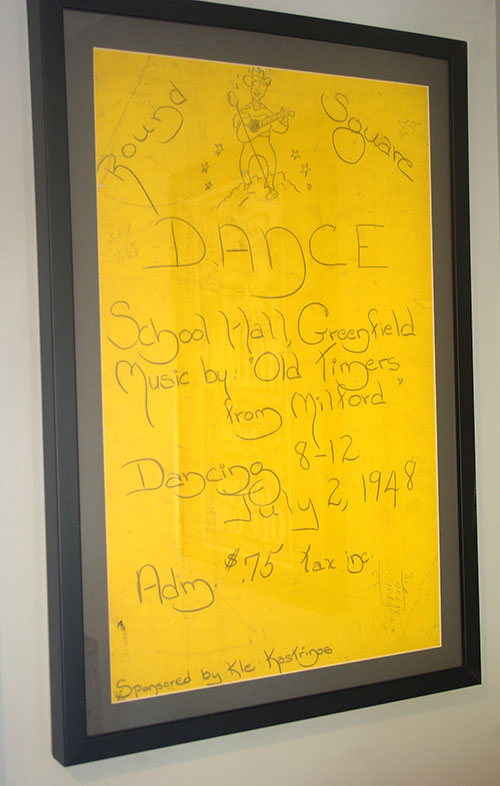 Round Square
DANCE
School Hall, Greenfield
Music by: "Old Timers
from Milford"
Dancing 8-12
July 2, 1948
Adm. $.75 tax inc.
Sponsored by Kle Kaskrinos